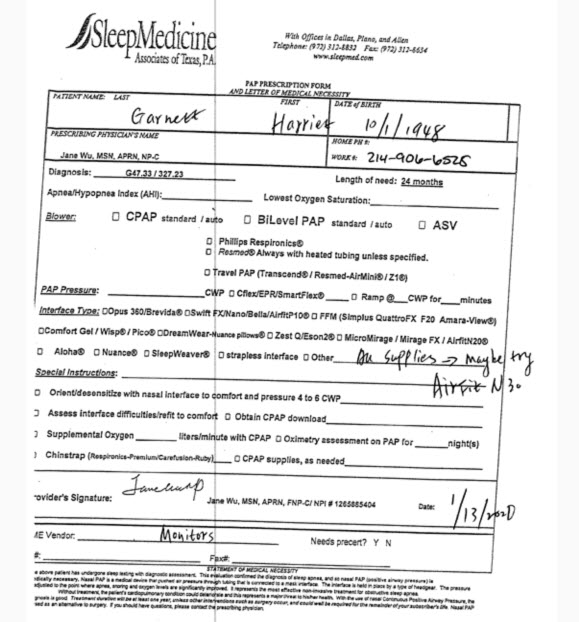 SleepMedicine
Associates of Texas, P.A.
With Offices in Dallas, Plano, and Allen
Telephone: (972) 312-8832 Fax: (972) 312-8634
www.sleepmed.com
PAP PRESCRIPTION FORM
AND LETTER OF MEDICAL NECESSITY
PATIENT NAME: LAST FIRST DATE of BIRTH
Garnett Harriet 10/1/1948
PRESCRIBING PHYSICIAN'S NAME HOME PH #:
Jane Wu, MSN, APRN, NP-C WORK #: 214-906-6525
Diagnosis: G47.33 / 327.23 Length of need: 24 months
Apnea/Hypopnea Index (AHI): Lowest Oxygen Saturation:
Blower: ☐ CPAP standard / auto ☐ BiLevel PAP standard / auto ☐ ASV
☐ Phillips Respironics®
☐ Resmed® Always with heated tubing unless specified.
☐ Travel PAP (Transcend® / Resmed-AirMini® / Z1®)
PAP Pressure: ______ CWP ☐ Cflex/EPR/SmartFlex® ____ ☐ Ramp @___ CWP for____minutes
Interface Type: ☐Opus 360/Brevida® ☐Swift FX/Nano/Bella/AirfitP10® ☐ FFM (Simplus QuattroFX F20 Amara-View®)
☐Comfort Gel / Wisp® / Pico® ☐DreamWear-Nuance pillows® ☐ Zest Q/Eson2® ☐ MicroMirage / Mirage FX / AirfitN20®
☐ Aloha® ☐ Nuance® ☐ SleepWeaver® ☐ strapless interface ☐ Other All supplies → maybe try
Airfit N30
Special Instructions:
☐ Orient/desensitize with nasal interface to comfort and pressure 4 to 6 CWP
Assess interface difficulties/refit to comfort ☐ Obtain CPAP download
Supplemental Oxygen ______ liters/minute with CPAP ☐ Oximetry assessment on PAP for _____night(s)
Chinstrap (Respironics-Premium/Carefusion-Ruby) ☐ CPAP supplies, as needed
rovider's Signature: Jane Wu, MSN, APRN, FNP-C/ NPI # 1265885404 Date: 1/13/2020
ME Vendor: Monitors Needs precert? Y N
#: Fax#:
STATEMENT OF MEDICAL NECESSITY
e above patient has undergone sleep testing with diagnostic assessment. This evaluation confirmed the diagnosis of sleep apnea, and so nasal PAP (positive airway pressure) is
dically necessary. Nasal PAP is a medical device that pushes air pressure through tubing that is connected to a mask interface. The interface is held in place by a type of headgear. The pressure
adjusted to the point where apnea, snoring and oxygen levels are significantly improved. It represents the most effective non-invasive treatment for obstructive sleep apnea.
Without treatment, the patient's cardiopulmonary condition could deteriorate and this represents a major threat to his/her health. With the use of nasal Continuous Positive Airway Pressure, the
gnosis is good. Treatment duration will be at least one year, unless other interventions such as surgery occur, and could well be required for the remainder of your subscriber's life. Nasal PAP
sed as an alternative to surgery. If you should have questions, please contact the prescribing physician.